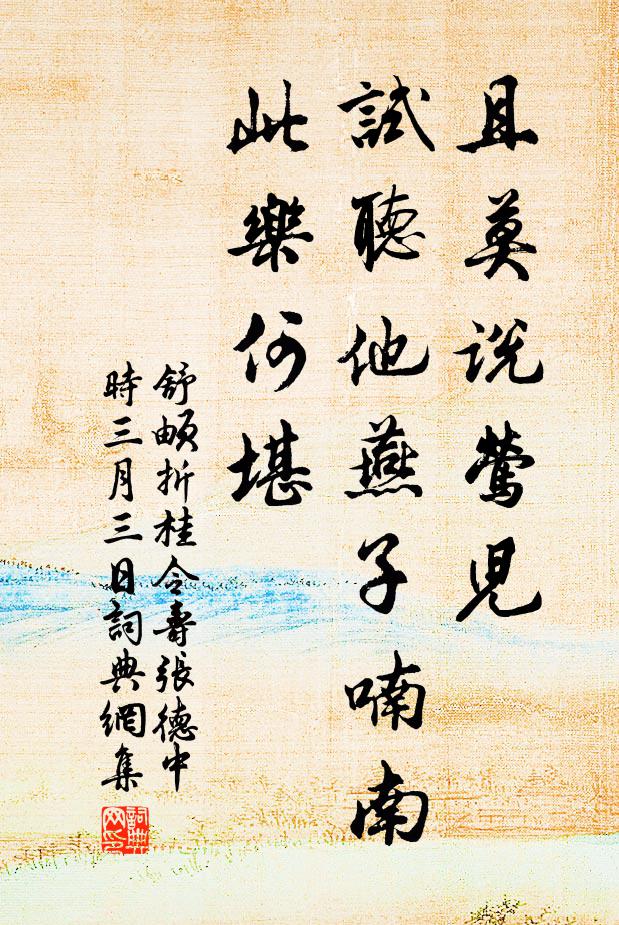 且莫说鶯児
試聽他燕子喃南
此樂何堪
舒頔折桂令壽張德中
時三月三日詞典網集
詞典网印